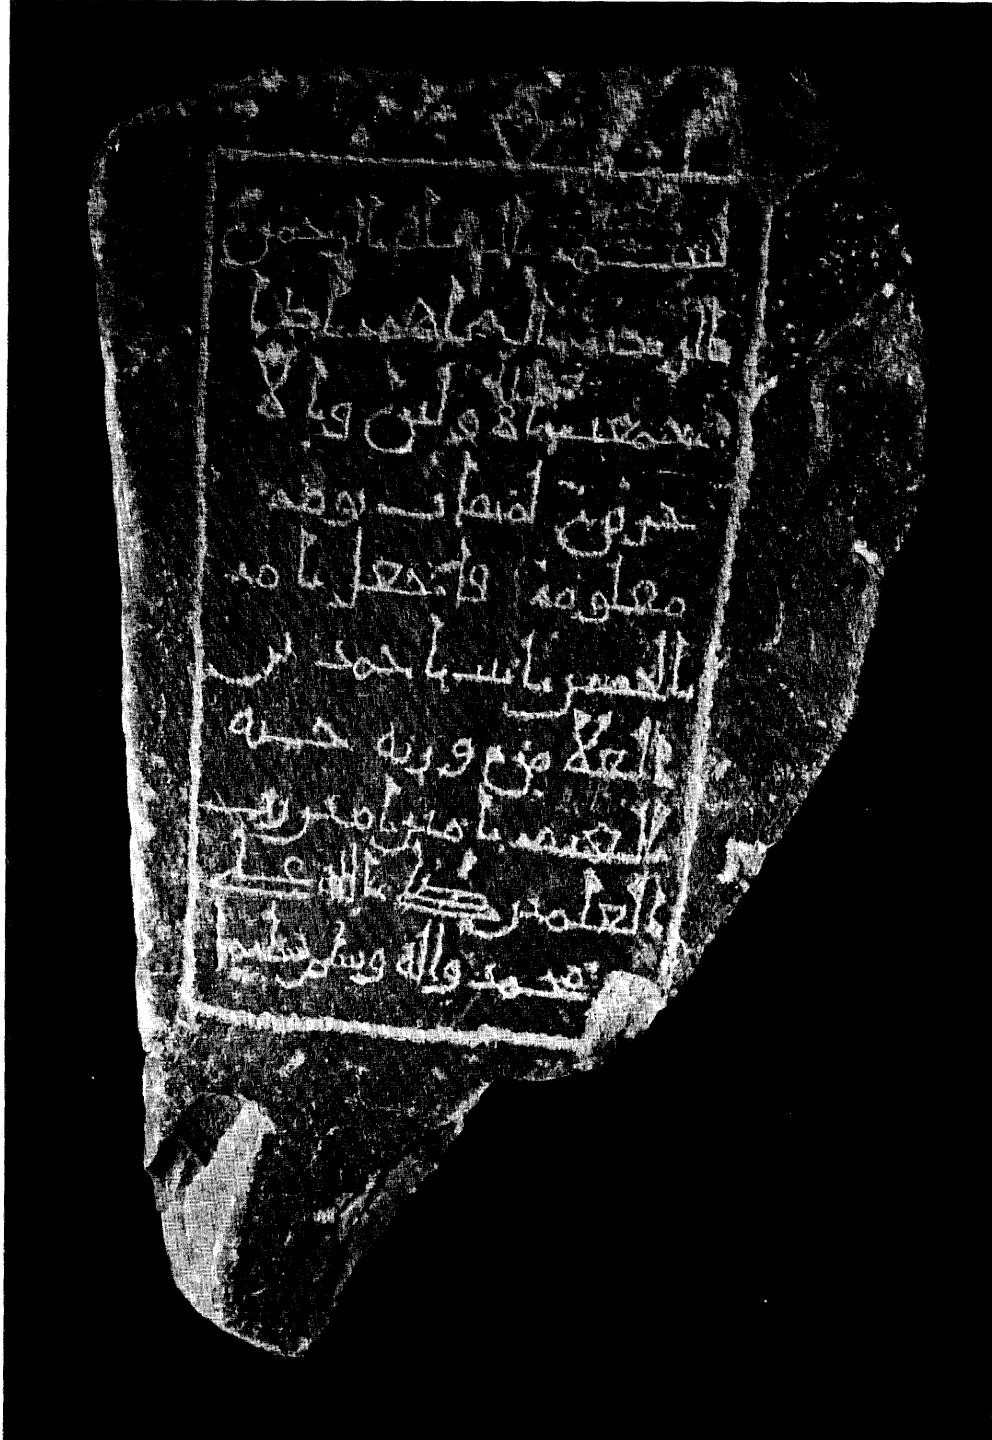 بسم الله الرحمن
الرحيم اللهم اذا
جمعت الاولين والا
خرين لميقات يوم
معلوم فاجعل ام
الحسن ابنت احمد بن
العلا من ورثة جنة
النعيم امين امين رب
العلمين وصلى الله على
محمد واله وسلم تسليما